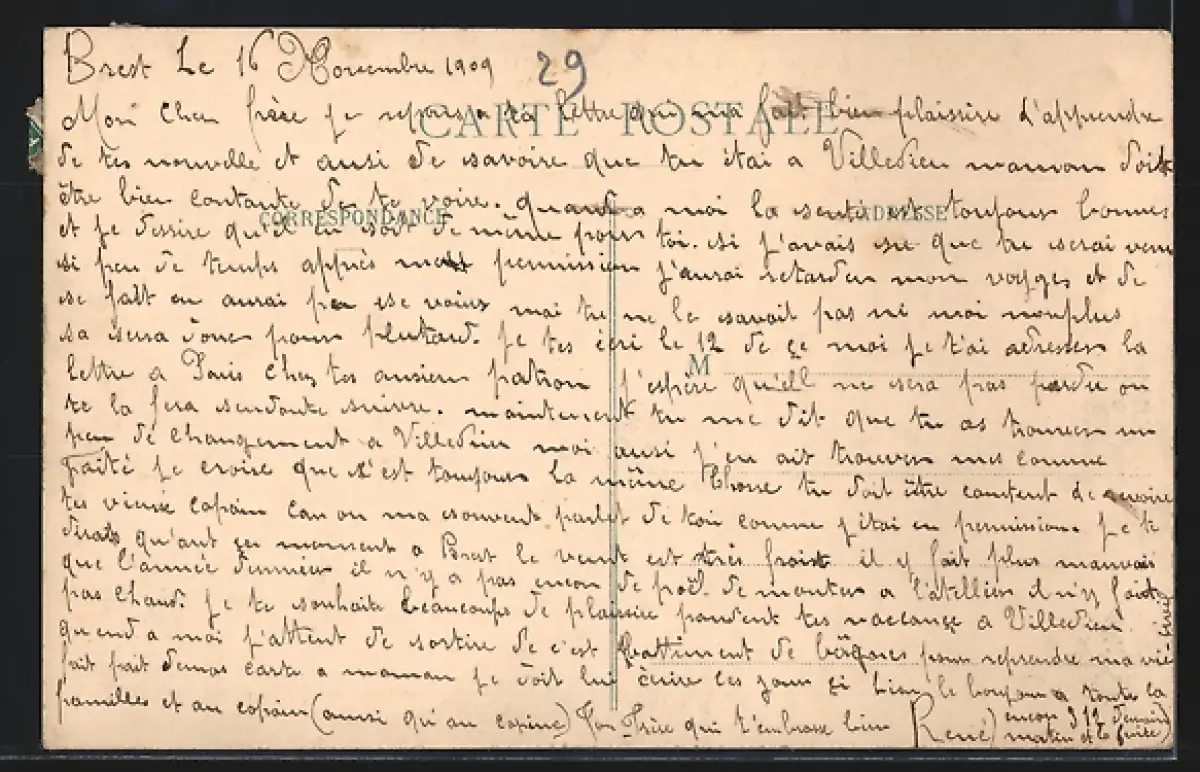 Brest Le 16 Novembre 1909 29
CARTE POSTALE
Mon Cher frère je repons a ta lettre qui ma fait bien plaissire d'apprendre
de tes nouvelle et ausi de savoire que tu étai a Villedieu maman doit
être bien contante de te voire. quand a moi la senté est toujour bonnes
CORRESPONDANCE ADRESSE
et je dessire qu'il en soit de même pour toi. si j'avais sue que tu serai venu
si peu de temps apprès ma permission j'aurai retarder mon voyages et de
se fait on aurai peu se voire mai tu ne le savait pas ni moi nonplus
sa sera donc pour plutard. je tes écri le 12 de çe moi je t'ai adresser la
M
lettre a Paris chez tes ansien patron j'espère qu'ell ne sera pas perdu on
te la fera sendoute suivre. maintenent tu me dit que tu as trouver un
peu de changement a Villedieu moi ausi j'en ait trouver mes comme
gaité je croire que s'est toujour la même chose tu doit être content de revoire
tes vieux copain car on ma souvent parlet de toi comme j'étai en permission. je te
dirait qu'ant çe moment a Brest le vent est très froit il y fait plus mauvais
que l'année dernier il n'y a pas encor de poël. de monter a l'atellier il n'y fait
pas chaud. je te souhaite beaucoups de plaissire pendent tes vaccançe a Villedieu
quend a moi j'attent de sortire de c'est battiment de pour reprendre ma vie
fait demos carte a maman je doit lui écrire ces jour çi bien le bonjour a toute la
familles et au copain (aussi qu'au copine) Ton Frère qui t'embrasse bien René
encor 312 demain
matin et la fuite)